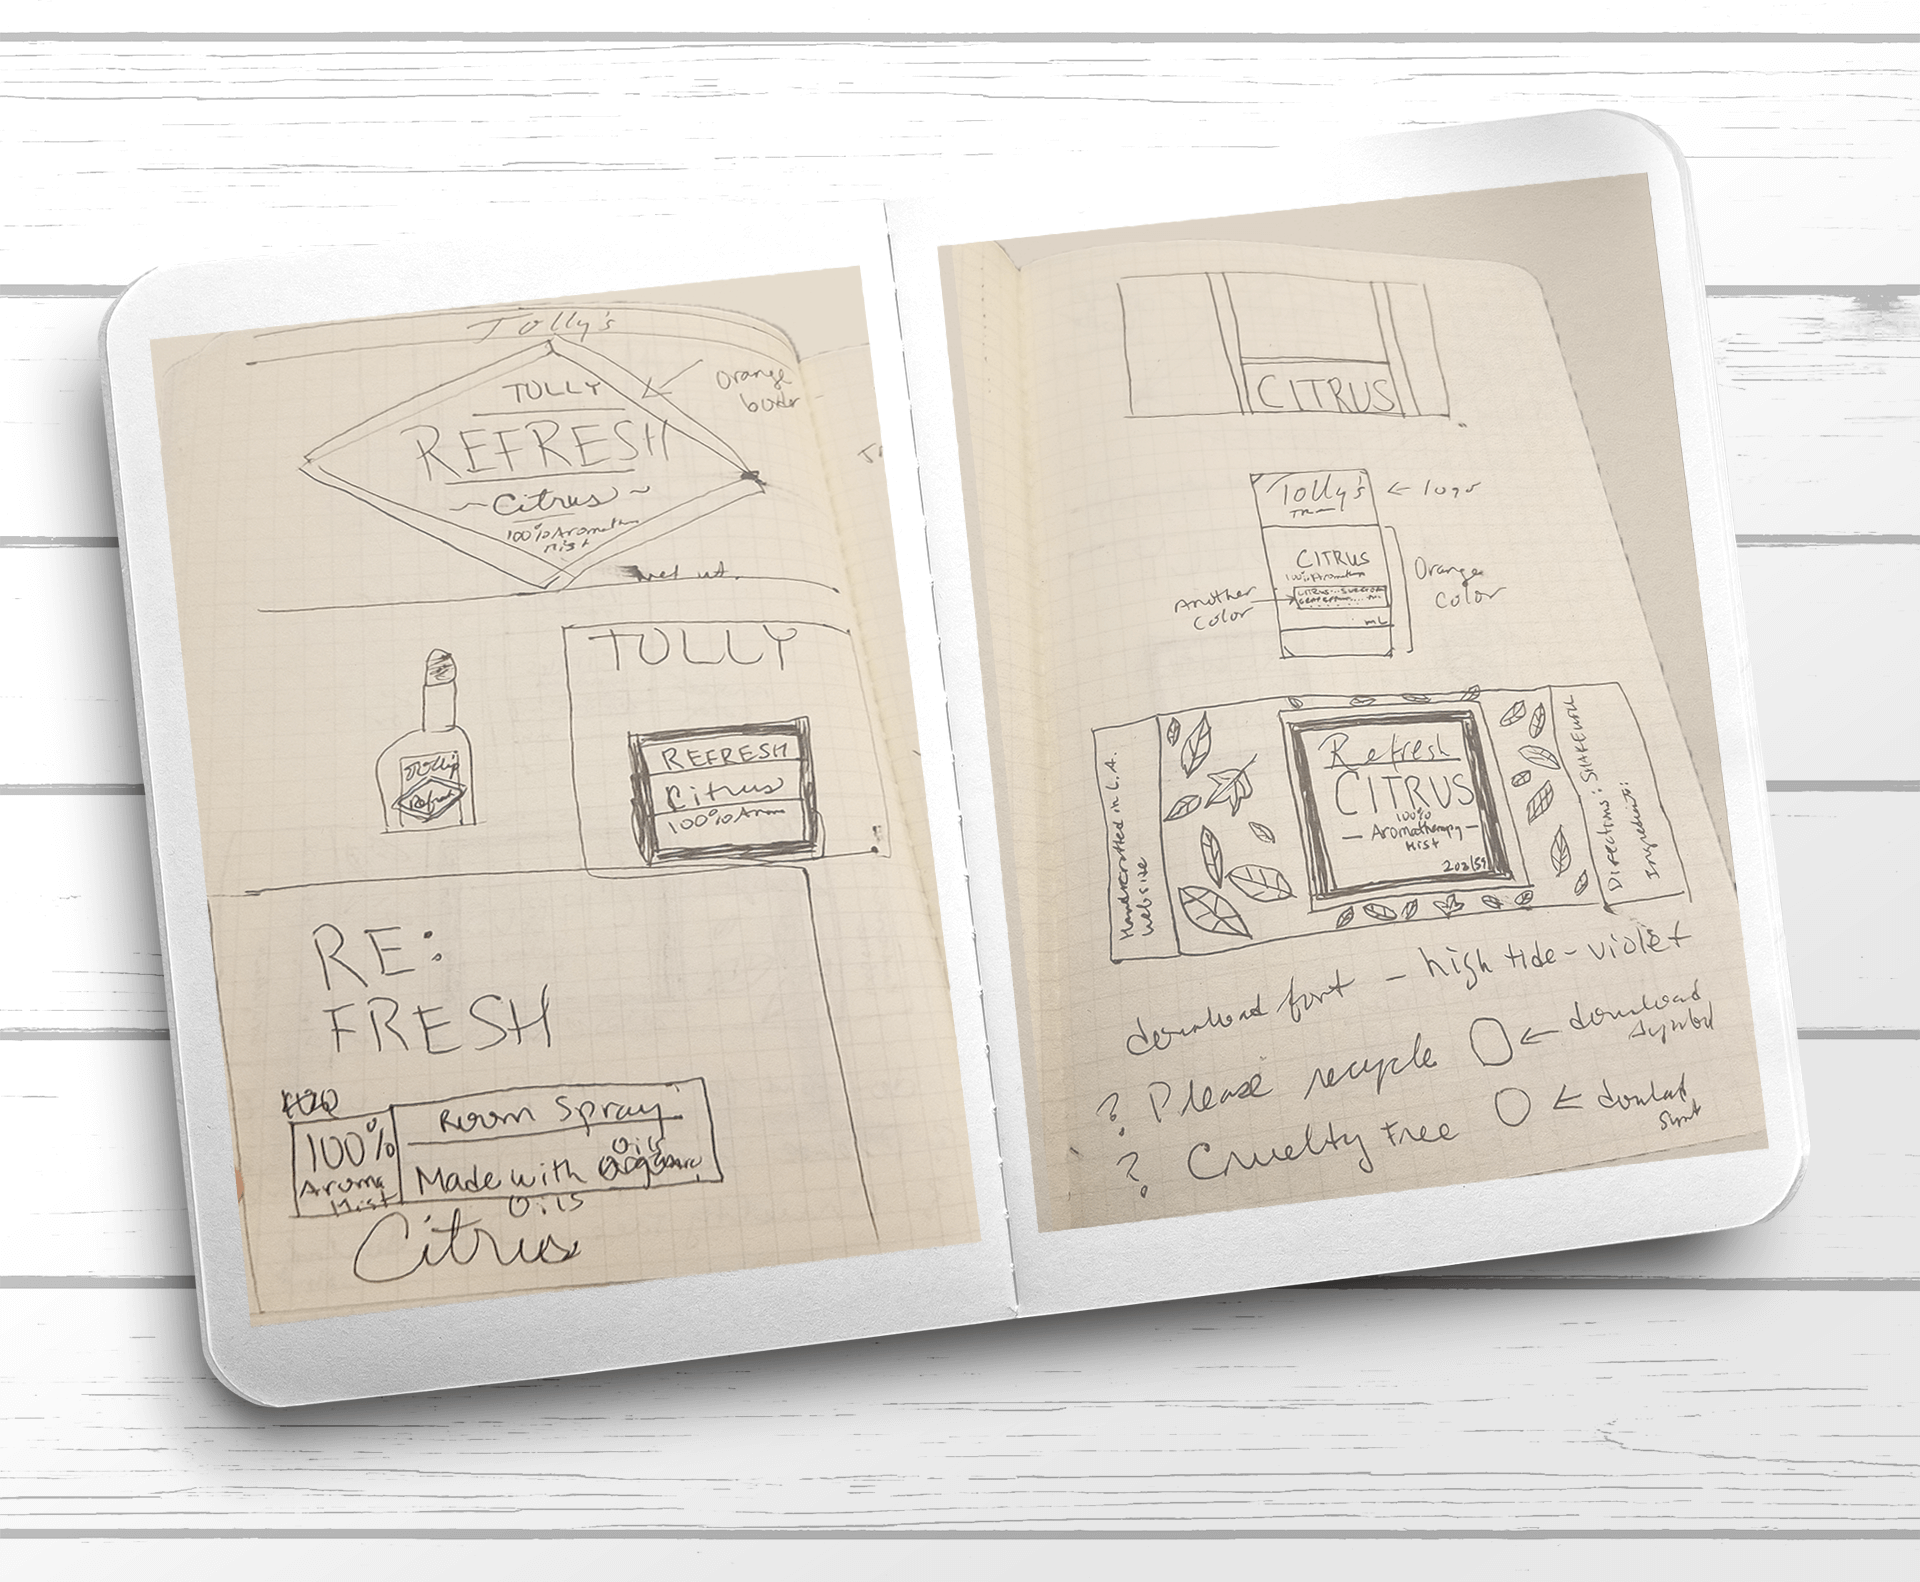 Tolly's
TOLLY
REFRESH
~Citrus~
100% Aroma
Mist
Orange
border
net wt.
Tolly's
Refresh
TOLLY
REFRESH
Citrus
100% Arom
RE:
FRESH
H2O
100%
Aroma
Mist
Room Spray
Made with
Oils
Oils
Citrus
CITRUS
Tolly's
← logo
CITRUS
100% Aroma
CITRUS
mL
Another
Color
Orange
Color
Handcrafted in L.A.
Website
Refresh
CITRUS
100%
— Aromatherapy —
Mist
Directions: SHAKE
Ingredients:
download font — high tide - violet
? Please recycle ← download
symbol
? Cruelty Free ←